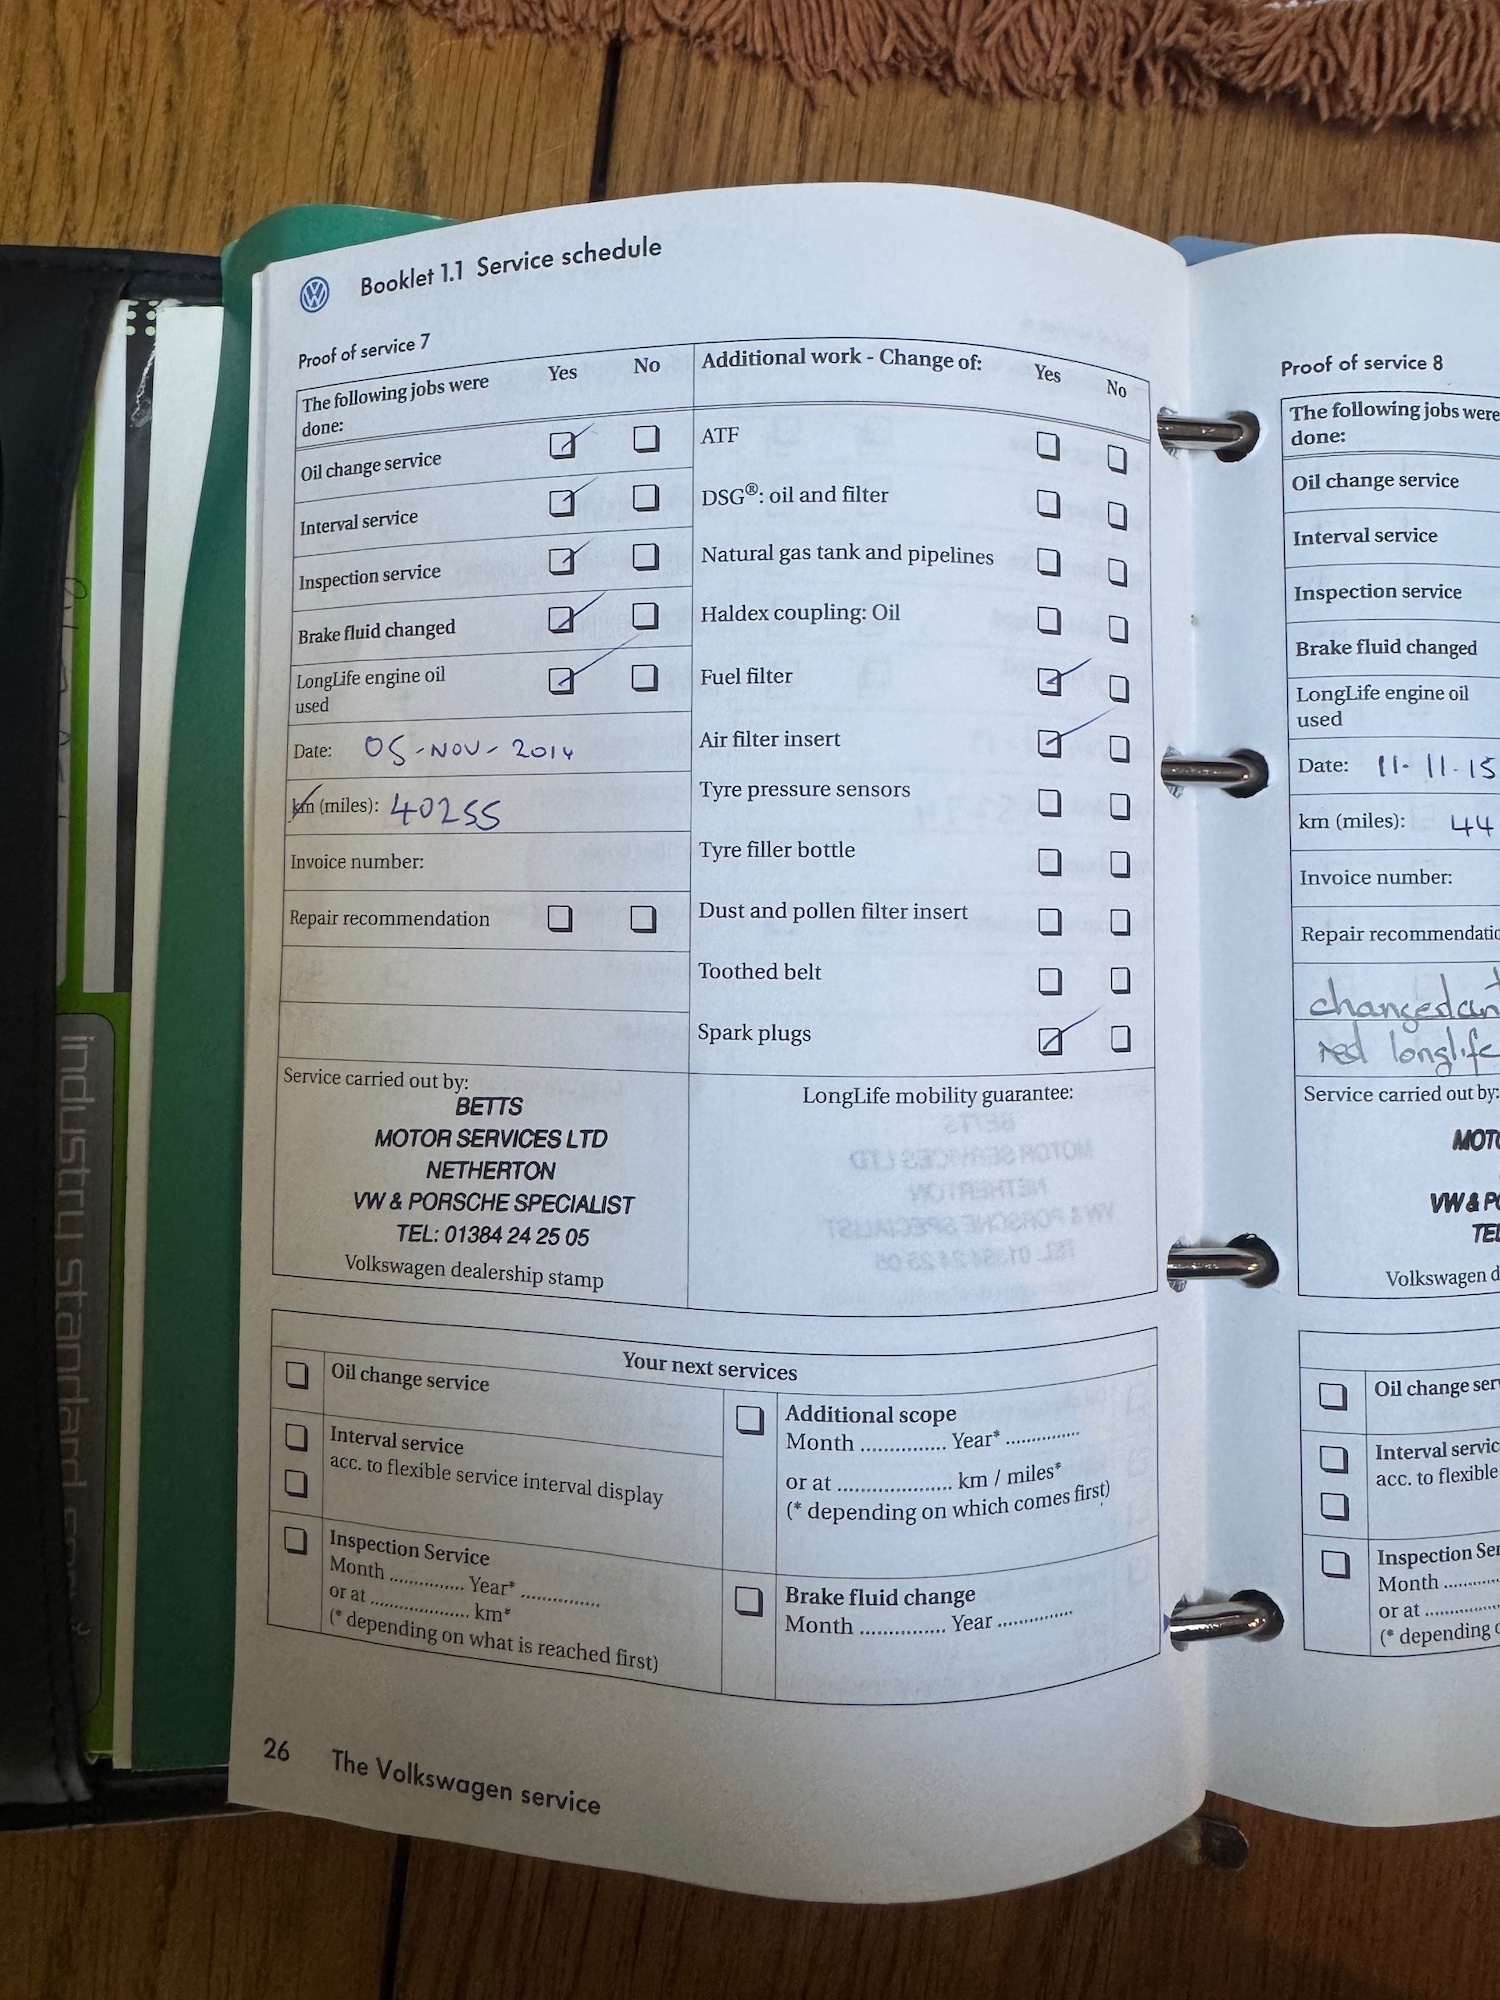 Booklet 1.1 Service schedule
Proof of service 7
The following jobs were
done:
Yes
No
Oil change service
Interval service
Inspection service
Brake fluid changed
LongLife engine oil
used
Date: 05-NOV-2014
km (miles): 40255
Invoice number:
Repair recommendation
Additional work - Change of:
Yes
No
ATF
DSG®: oil and filter
Natural gas tank and pipelines
Haldex coupling: Oil
Fuel filter
Air filter insert
Tyre pressure sensors
Tyre filler bottle
Dust and pollen filter insert
Toothed belt
Spark plugs
Service carried out by:
BETTS
MOTOR SERVICES LTD
NETHERTON
VW & PORSCHE SPECIALIST
TEL: 01384 24 25 05
Volkswagen dealership stamp
LongLife mobility guarantee:
Your next services
Oil change service
Interval service
acc. to flexible service interval display
Inspection Service
Month .............. Year* ...............
or at .................... km*
(* depending on what is reached first)
Additional scope
Month .............. Year* .............
or at .................... km / miles*
(* depending on which comes first)
Brake fluid change
Month .............. Year .............
26 The Volkswagen service
Proof of service 8
The following jobs were
done:
Oil change service
Interval service
Inspection service
Brake fluid changed
LongLife engine oil
used
Date: 11-11-15
km (miles): 44
Invoice number:
Repair
changed
red longlife
Service carried out by:
VW &
Volkswagen
Oil change
Interval
acc. to flexible
Inspection
Month ...........
or at ............
(* depending
industry standard